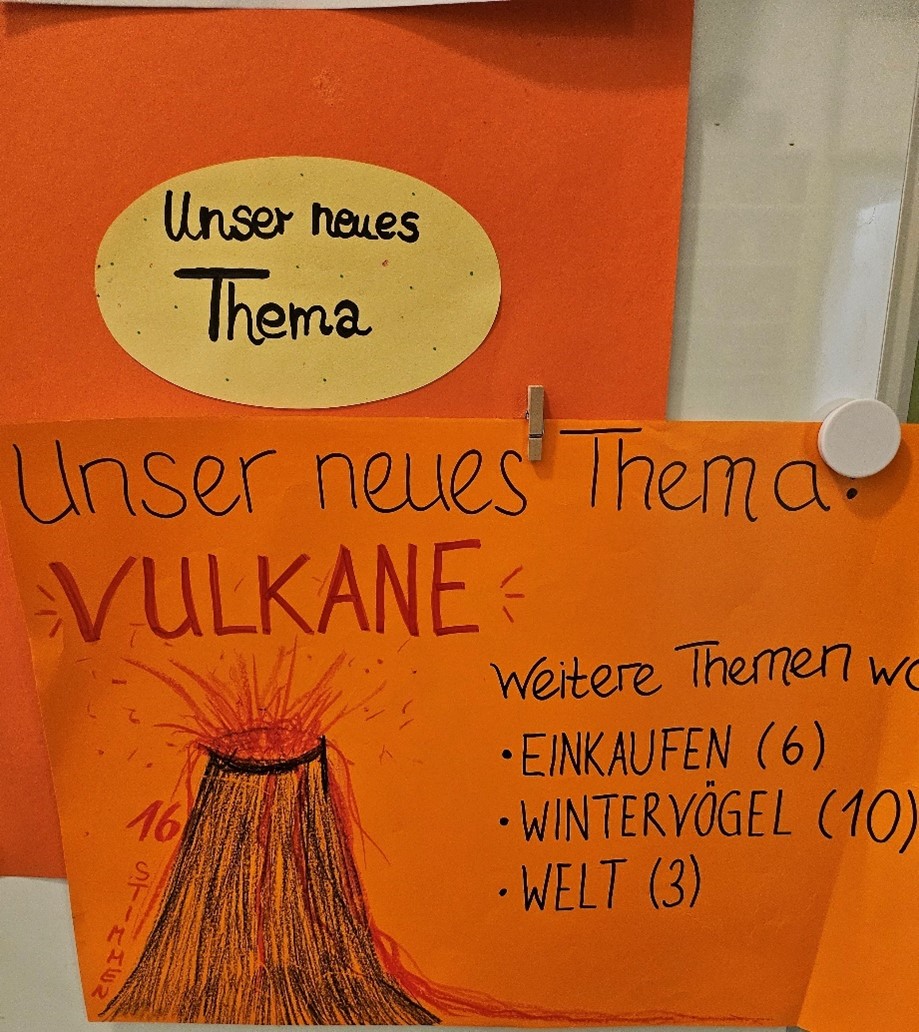 Unser neues
Thema
Unser neues Thema:
VULKANE
Weitere Themen
• EINKAUFEN (6)
• WINTERVÖGEL (10)
• WELT (3)
16
STIMMEN